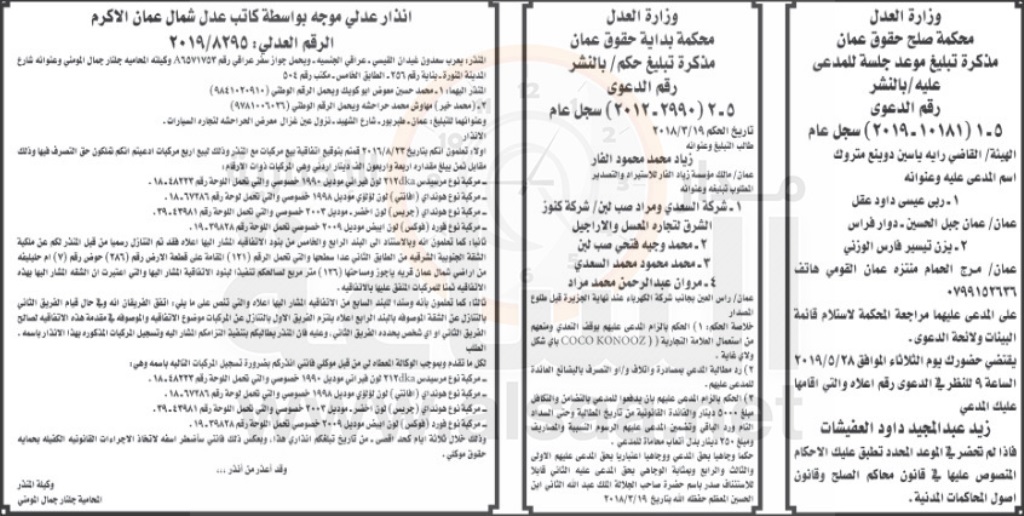 وزارة العدل
محكمة صلح حقوق عمان
مذكرة تبليغ موعد جلسة للمدعى
عليه/بالنشر
رقم الدعوى
٥-١ (١٠١٨١-٢٠١٩) سجل عام
الهيئة/ القاضي رايه ياسين دوينع متروك
اسم المدعى عليه وعنوانه
١- ربى عيسى داود عقل
عمان/ عمان جبل الحسين - دوار فراس
٢- يزن تيسير فارس الوزني
عمان/ مرج الحمام منتزه عمان القومي هاتف
٠٧٩٩١٥٢٦٣٦
على المدعى عليهما مراجعة المحكمة لاستلام قائمة
البينات ولائحة الدعوى
يقتضي حضورك يوم الثلاثاء الموافق ٢٠١٩/٥/٢٨
الساعة ٩ للنظر في الدعوى رقم اعلاه والتي اقامها
عليك المدعي
زيد عبدالمجيد داود العفيشات
فاذا لم تحضر في الموعد المحدد تطبق عليك الاحكام
المنصوص عليها في قانون محاكم الصلح وقانون
اصول المحاكمات المدنية.
وزارة العدل
محكمة بداية حقوق عمان
مذكرة تبليغ حكم/ بالنشر
رقم الدعوى
٥-٢ (٢٩٩٠-٢٠١٢) سجل عام
تاريخ الحكم ٢٠١٨/٣/١٩
طالب التبليغ وعنوانه
زياد محمد محمود الفار
عمان/ مالك مؤسسة زياد الفار للاستيراد والتصدير
المطلوب تبليغه وعنوانه
١- شركة السعدي ومراد صب لبن/ شركة كنوز
الشرق لتجارة المعسل والاراجيل
٢- محمد وجيه فتحي صب لبن
٣- محمد محمود محمد السعدي
٤- مروان عبدالرحمن محمد مراد
عمان/ راس العين بجانب شركة الكهرباء عند نهاية الجزيرة قبل طلوع
المصدار
خلاصة الحكم: ١) الحكم بالزام المدعى عليهم بوقف التعدي ومنعهم
من استعمال العلامة التجارية ( COCO KONOOZ) باي شكل
ولاي غاية.
٢) رد مطالبة المدعي بمصادرة واتلاف و/او التصرف بالبضائع العائدة
للمدعى عليهم.
٣) الحكم بالزام المدعى عليهم بان يدفعوا للمدعي بالتضامن والتكافل
مبلغ ٥٠٠٠ دينار والفائدة القانونية من تاريخ المطالبة وحتى السداد
التام ورد الباقي وتضمين المدعى عليهم الرسوم النسبية والمصاريف
ومبلغ ٢٥٠ دينار بدل أتعاب محاماة للمدعي.
حكما وجاهيا بحق المدعي وجاهيا اعتباريا بحق المدعى عليهم الاولى
والثالث والرابع وبمثابة الوجاهي بحق المدعى عليه الثاني قابلا
للاستئناف صدر باسم حضرة صاحب الجلالة الملك عبد الله الثاني ابن
الحسين المعظم حفظه الله بتاريخ ٢٠١٨/٣/١٩
انذار عدلي موجه بواسطة كاتب عدل شمال عمان الاكرم
الرقم العدلي: ٢٠١٩/٨٢٩٥
المنذر: يعرب سعدون غيدان القيسي - عراقي الجنسيه - ويحمل جواز سفر عراقي رقم ٨٦٥٧١٧٥٣ وكيلته المحاميه جلنار جمال المومني وعنوانه شارع
المدينة المنورة - بناية رقم ٢٥٦ - الطابق الخامس - مكتب رقم ٥٠٤
المنذر اليهما: ١- محمد حسين معوض ابو كويك ويحمل الرقم الوطني (٩٨٤١٠٢٠٩١٠)
٢- (محمد خير) مهاوش محمد حراحشه ويحمل الرقم الوطني (٩٧٨١٠٠٦٠٣٦)
وعنوانهما للتبليغ: عمان - طبربور - شارع الشهيد - نزول عين غزال معرض الحراحشه لتجاره السيارات.
الانذار
اولا: تعلمون أنكم بتاريخ ٢٠١٦/٨/٢٣ قمتم بتوقيع اتفاقية بيع مركبات مع المنذر وذلك لبيع اربع مركبات ادعيتم انكم تملكون حق التصرف فيها وذلك
مقابل ثمن يبلغ مقداره اربعة واربعون الف دينار اردني وهي المركبات ذوات الارقام:
- مركبة نوع مرسيدس ٢١٢dka لون فيراني موديل ١٩٩٠ خصوصي والتي تحمل اللوحة رقم ٤٨٢٢٣-١٨.
- مركبة نوع هونداي (افانتي) لون لؤلؤي موديل ١٩٩٨ خصوصي والتي تحمل اللوحة رقم ٦٧٢٨٦-١٨.
- مركبة نوع هونداي (جريس) لون اخضر - موديل ٢٠٠٣ خصوصي والتي تحمل اللوحة رقم ٤٣٩٨١-٣٩.
- مركبة نوع فورد (فوكس) لون ابيض موديل ٢٠٠٩ خصوصي والتي تحمل لوحة رقم ٣٩٨٢٨-١٩.
ثانيا: كما تعلمون أنه وبالاستناد الى البند الرابع والخامس من بنود الاتفاقيه المشار اليها اعلاه فقد تم التنازل رسميا من قبل المنذر لكم عن ملكية
الشقة الجنوبية الشرقيه من الطابق الثاني عدا سطحها والتي تحمل الرقم (١٢١) المقامة على قطعة الارض رقم (٢٨٦) حوض رقم (٧) ام حليليفه
من اراضي شمال عمان قريه ياجوز ومساحتها (١٢٦) متر مربع لصالحكم تنفيذا لبنود الاتفاقية المشار اليها والتي اعتبرت ان الشقه المشار اليها بهذه
الاتفاقيه ثمنا للمركبات المتفق عليها بالاتفاقيه.
ثالثا: كما تعلمون بأنه وسندا للبند السابع من الاتفاقيه المشار اليها اعلاه والتي تنص على ما يلي: اتفق الفريقان انه وفي حال قيام الفريق الثاني
بالتنازل عن الشقة الموصوفه بالبند الرابع اعلاه يلتزم الفريق الاول بالتنازل عن المركبات موضوع الاتفاقيه والموصوفه في مقدمة هذه الاتفاقيه لصالح
الفريق الثاني او اي شخص يحدده الفريق الثاني، وعليه فان المنذر يطالبكم بتنفيذ التزامكم المشار اليه وتسجيل المركبات المذكوره بهذا الانذار باسمه.
الطلب
لكل ما تقدم وبموجب الوكالة المعطاه لي من قبل موكلي فانني أنذركم بضرورة تسجيل المركبات التاليه باسمه وهي:
- مركبة نوع مرسيدس ٢١٢dka لون فيراني موديل ١٩٩٠ خصوصي والتي تحمل اللوحة رقم ٤٨٢٢٣-١٨.
- مركبة نوع هونداي (افانتي) لون لؤلؤي موديل ١٩٩٨ خصوصي والتي تحمل لوحة رقم ٦٧٢٨٦-١٨.
- مركبة نوع هونداي (جريس) لون اخضر - موديل ٢٠٠٣ خصوصي والتي تحمل اللوحة رقم ٤٣٩٨١-٣٩.
- مركبة نوع فورد (فوكس) لون ابيض موديل ٢٠٠٩ خصوصي والتي تحمل لوحة رقم ٣٩٨٢٨-١٩.
وذلك خلال ثلاثة ايام كحد اقصى - من تاريخ تبلغكم انذاري هذا، وبعكس ذلك فانني سأضطر اسفه لاتخاذ الاجراءات القانونيه الكفيله بحمايه
حقوق موكلي.
وقد أعذر من أنذر ...
وكيلة المنذر
المحامية جلنار جمال المومني